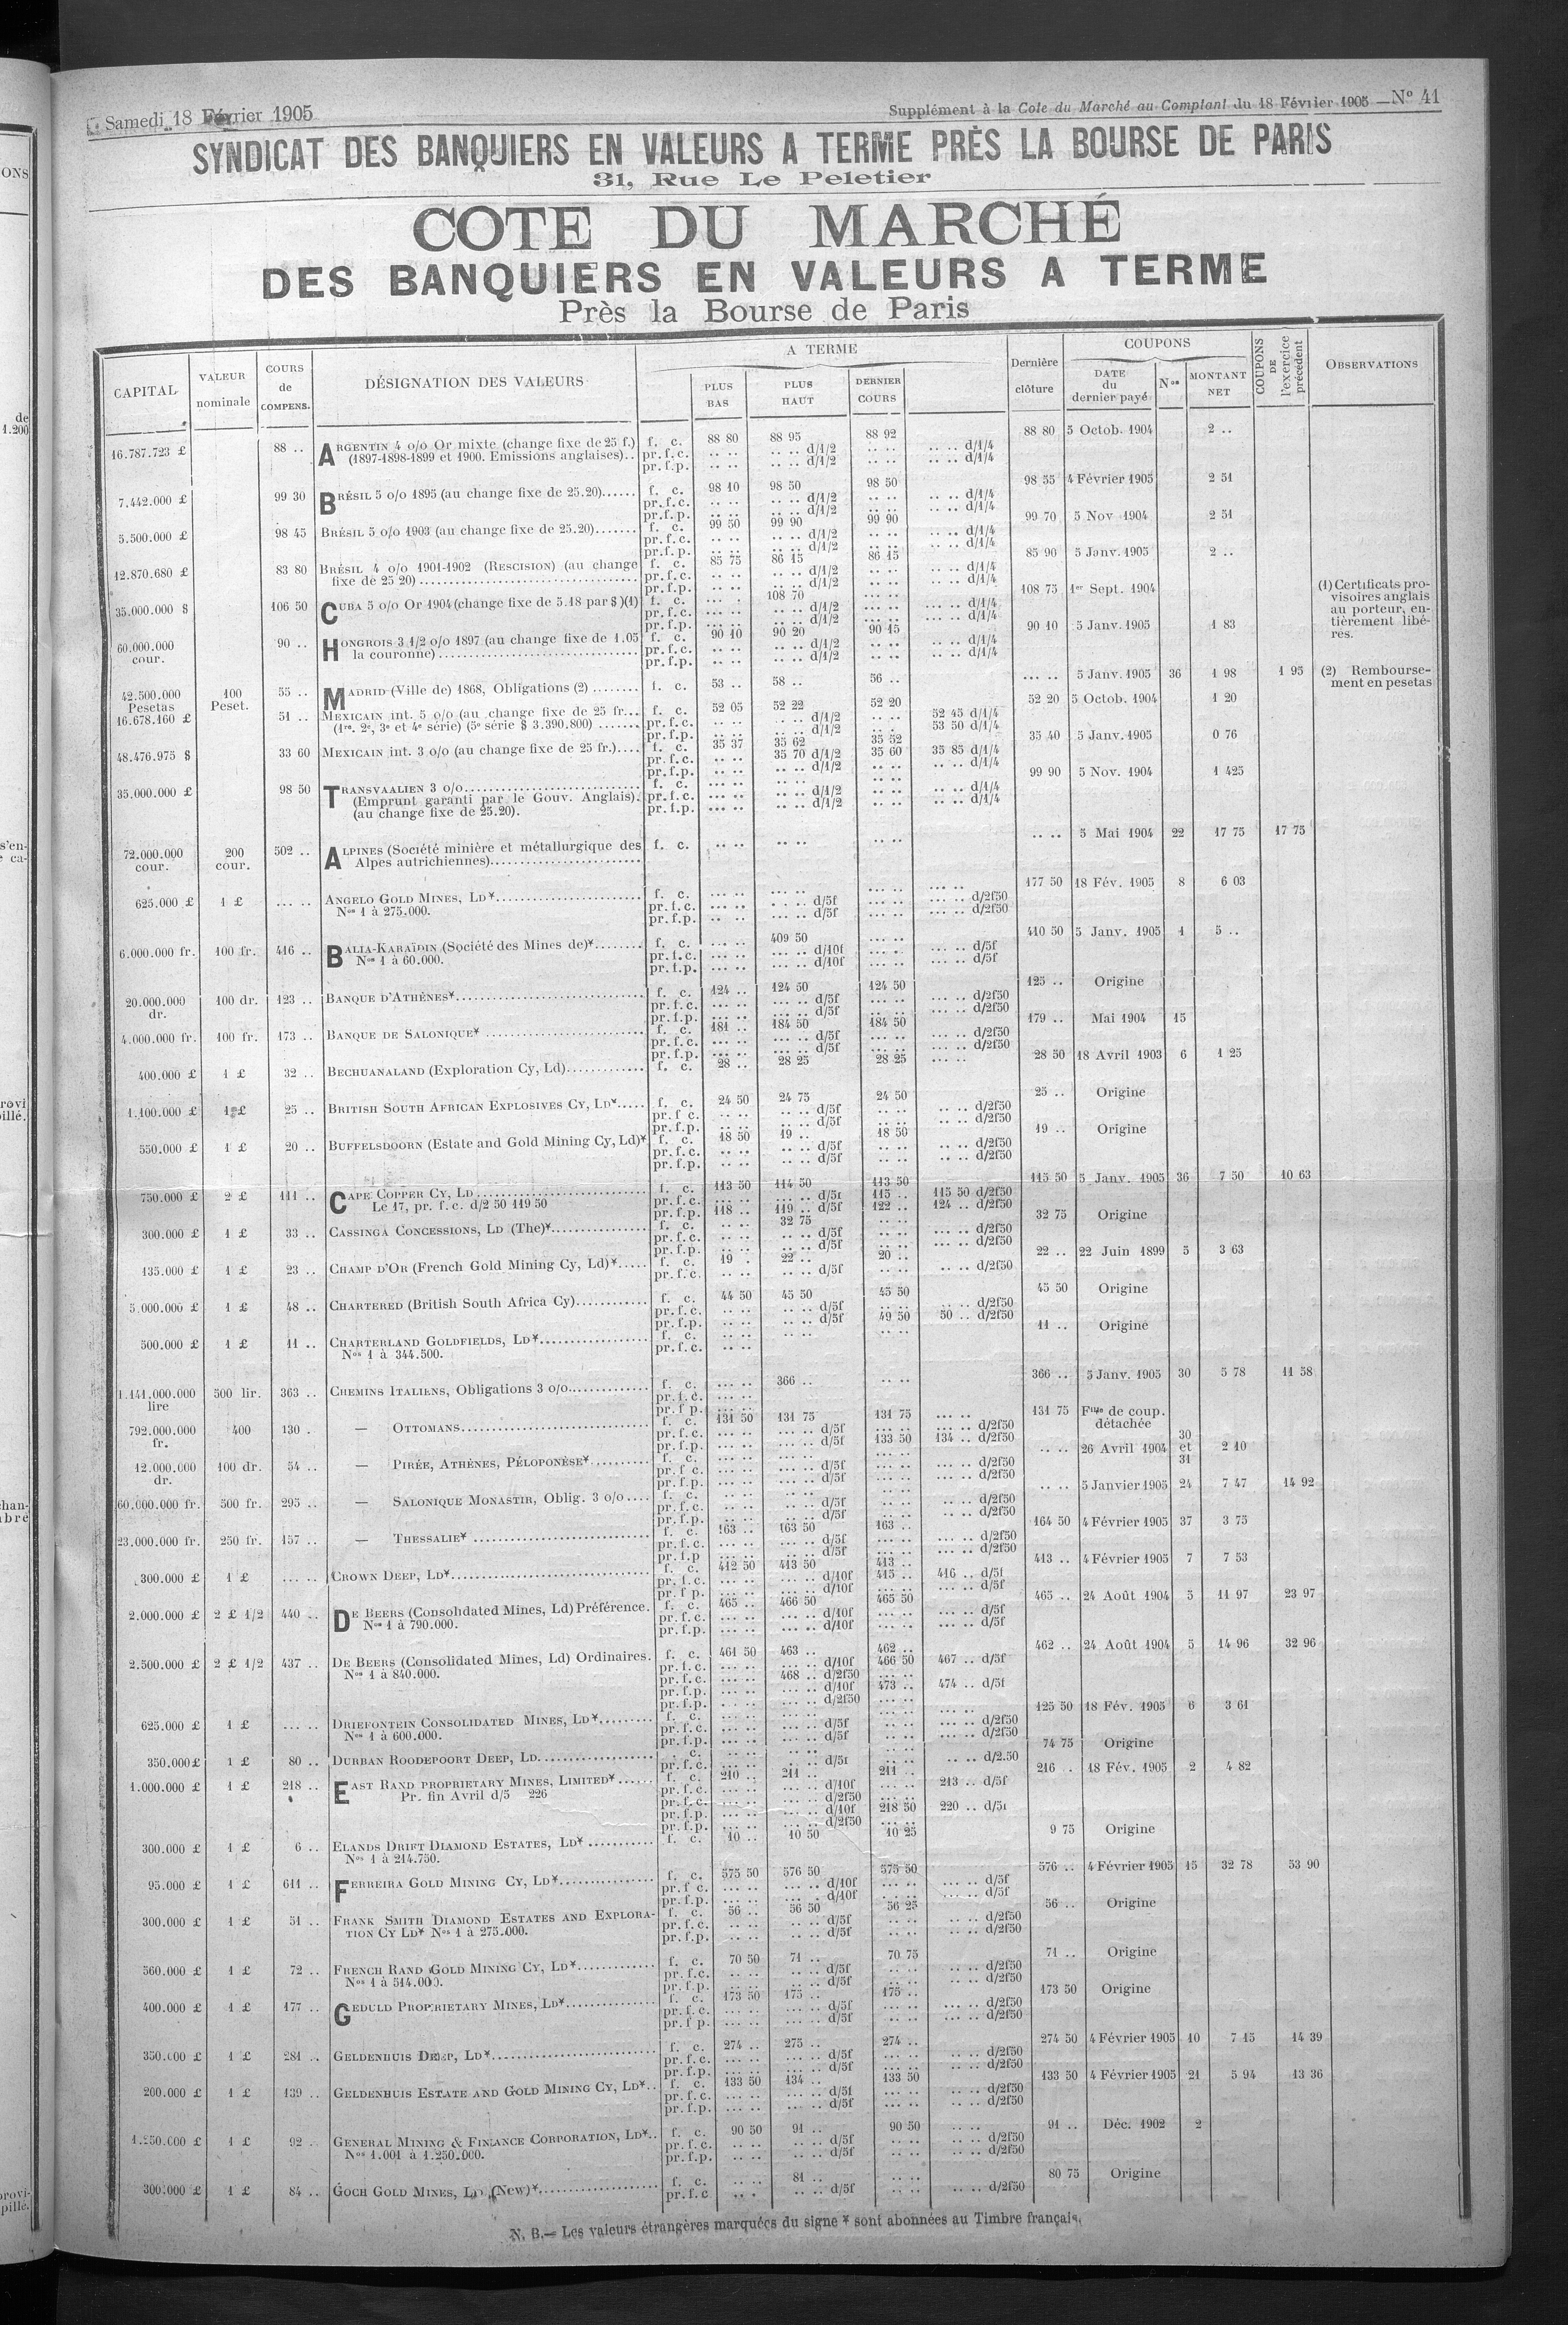 Samedi 18 Février 1905
Supplément à la Cote du Marché au Comptant du 18 Février 1905 — Nº 41
SYNDICAT DES BANQUIERS EN VALEURS A TERME PRÈS LA BOURSE DE PARIS
31, Rue Le Peletier
COTE DU MARCHÉ
DES BANQUIERS EN VALEURS A TERME
Près la Bourse de Paris
CAPITAL VALEUR nominale COURS de COMPENS. DÉSIGNATION DES VALEURS A TERME PLUS BAS PLUS HAUT DERNIER COURS Dernière clôture COUPONS DATE du dernier payé Nos MONTANT NET COUPONS DE l'exercice précédent OBSERVATIONS
16.787.723 £ 88 .. ARGENTIN 4 o/o Or mixte (change fixe de 25 f.) f. c. 88 80 88 95 88 92 88 80 5 Octob. 1904 2 ..
(1897-1898-1899 et 1900. Emissions anglaises).. pr. f. c. .. .. .. .. d/1/2 .. .. d/1/4
pr. f. p. .. .. .. .. d/1/2 .. .. d/1/4
7.442.000 £ 99 30 BRÉSIL 5 o/o 1895 (au change fixe de 25.20)...... f. c. 98 10 98 50 98 50 98 55 4 Février 1905 2 51
pr. f. c. .. .. .. .. d/1/2 .. .. d/1/4
pr. f. p. .. .. .. .. d/1/2 .. .. d/1/4
5.500.000 £ 98 45 BRÉSIL 5 o/o 1903 (au change fixe de 25.20)....... f. c. 99 50 99 90 99 90 99 70 5 Nov 1904 2 51
pr. f. c. .. .. .. .. d/1/2 .. .. d/1/4
pr. f. p. .. .. .. .. d/1/2 .. .. d/1/4
12.870.680 £ 83 80 BRÉSIL 4 o/o 1901-1902 (RESCISION) (au change f. c. 85 75 86 15 86 15 85 90 5 Janv. 1905 2 ..
fixe de 25 20) pr. f. c. .. .. .. .. d/1/2 .. .. d/1/4
pr. f. p. .. .. .. .. d/1/2 .. .. d/1/4
35.000.000 $ 106 50 CUBA 5 o/o Or 1904 (change fixe de 5.18 par $) (1) f. c. 108 70 108 75 1er Sept. 1904
pr. f. c. .. .. .. .. d/1/2 .. .. d/1/4
pr. f. p. .. .. .. .. d/1/2 .. .. d/1/4
(1) Certificats pro-
visoires anglais
au porteur, en-
tièrement libé-
rés.
60.000.000 cour. 90 .. HONGROIS 3 1/2 o/o 1897 (au change fixe de 1.05 f. c. 90 10 90 20 90 15 90 10 5 Janv. 1905 1 83
la couronne) pr. f. c. .. .. .. .. d/1/2 .. .. d/1/4
pr. f. p. .. .. .. .. d/1/2 .. .. d/1/4
42.500.000 Pesetas 100 Peset. 55 .. MADRID (Ville de) 1868, Obligations (2) ........ f. c. 53 .. 58 .. 56 .. .. .. 5 Janv. 1905 36 1 98 1 95
(2) Rembourse-
ment en pesetas
16.678.160 £ 51 .. MEXICAIN int. 5 o/o (au change fixe de 25 fr... f. c. 52 05 52 22 52 20 52 20 5 Octob. 1904 1 20
(1re. 2e, 3e et 4e série) (5e série $ 3.390.800) ....... pr. f. c. .. .. .. .. d/1/2 .. .. 52 45 d/1/4
pr. f. p. .. .. .. .. d/1/2 .. .. 53 50 d/1/4
48.476.975 $ 33 60 MEXICAIN int. 3 o/o (au change fixe de 25 fr.).... f. c. 35 37 35 62 35 52 35 40 5 Janv. 1905 0 76
pr. f. c. .. .. 35 70 d/1/2 35 60 35 85 d/1/4
pr. f. p. .. .. .. .. d/1/2 .. .. d/1/4
35.000.000 £ 98 50 TRANSVAALIEN 3 o/o f. c. .. .. .. .. .. .. 99 90 5 Nov. 1904 1 425
(Emprunt garanti par le Gouv. Anglais). pr. f. c. .. .. .. .. d/1/2 .. .. d/1/4
(au change fixe de 25.20). pr. f. p. .. .. .. .. d/1/2 .. .. d/1/4
72.000.000 cour. 200 cour. 502 .. ALPINES (Société minière et métallurgique des f. c. .. .. .. .. .. .. .. .. 5 Mai 1904 22 17 75 17 75
Alpes autrichiennes)
625.000 £ 1 £ ... .. ANGELO GOLD MINES, LD* f. c. ... .. ... .. ... .. 177 50 18 Fév. 1905 8 6 03
Nos 1 à 275.000. pr. f. c. ... .. d/5f ... .. d/2f50
pr. f. p. .. .. d/5f ... .. d/2f50
6.000.000 fr. 100 fr. 416 .. BALIA-KARAÏDIN (Société des Mines de)* f. c. ... .. 409 50 ... .. 410 50 5 Janv. 1905 1 5 ..
Nos 1 à 60.000. pr. f. c. ... .. ... .. d/10f ... .. d/5f
pr. f. p. ... .. ... .. d/10f ... .. d/5f
20.000.000 dr. 100 dr. 123 .. BANQUE D'ATHÈNES* f. c. 124 .. 124 50 124 50 125 .. Origine
pr. f. c. ... .. d/5f ... .. d/2f50
pr. f. p. ... .. d/5f ... .. d/2f50
4.000.000 fr. 100 fr. 173 .. BANQUE DE SALONIQUE* f. c. 181 .. 184 50 184 50 179 .. Mai 1904 15
pr. f. c. ... .. d/5f ... .. d/2f50
pr. f. p. ... .. d/5f ... .. d/2f50
400.000 £ 1 £ 32 .. BECHUANALAND (Exploration Cy, Ld) f. c. 28 .. 28 25 28 25 28 50 18 Avril 1903 6 1 25
1.100.000 £ 1 £ 25 .. BRITISH SOUTH AFRICAN EXPLOSIVES CY, LD* f. c. 24 50 24 75 24 50 25 .. Origine
pr. f. c. .. .. d/5f .. .. d/2f50
pr. f. p. .. .. d/5f .. .. d/2f50
550.000 £ 1 £ 20 .. BUFFELSDOORN (Estate and Gold Mining Cy, Ld)* f. c. 18 50 19 .. 18 50 19 .. Origine
pr. f. c. .. .. d/5f .. .. d/2f50
pr. f. p. .. .. d/5f .. .. d/2f50
750.000 £ 2 £ 111 .. CAPE COPPER CY, LD f. c. 113 50 114 50 113 50 115 50 5 Janv. 1905 36 7 50 10 63
Le 17, pr. f. c. d/2 50 119 50 pr. f. c. ... .. ... .. d/5f 115 .. 115 50 d/2f50
pr. f. p. 118 .. 119 .. d/5f 122 .. 124 .. d/2f50
300.000 £ 1 £ 33 .. CASSINGA CONCESSIONS, LD (The)* f. c. .. .. 32 75 .. .. 32 75 Origine
pr. f. c. .. .. d/5f ... .. d/2f50
pr. f. p. .. .. d/5f ... .. d/2f50
135.000 £ 1 £ 23 .. CHAMP D'OR (French Gold Mining Cy, Ld)* f. c. 19 . 22 .. 20 .. 22 .. 22 Juin 1899 5 3 63
pr. f. c. .. .. d/5f .. .. d/2f50
5.000.000 £ 1 £ 48 .. CHARTERED (British South Africa Cy) f. c. 44 50 45 50 45 50 45 50 Origine
pr. f. c. .. .. d/5f .. .. d/2f50
pr. f. p. .. .. d/5f 49 50 50 .. d/2f50
500.000 £ 1 £ 11 .. CHARTERLAND GOLDFIELDS, LD* f. c. .. .. .. .. .. .. 11 .. Origine
Nos 1 à 344.500. pr. f. c. .. ..
1.141.000.000 lire 500 lir. 363 .. CHEMINS ITALIENS, Obligations 3 o/o f. c. ... .. 366 .. .. .. 366 .. 5 Janv. 1905 30 5 78 11 58
pr. f. c. ... ..
pr. f. p. ... ..
792.000.000 fr. 400 130 . — OTTOMANS f. c. 131 50 131 75 131 75 ... .. 131 75 Flle de coup. détachée
pr. f. c. ... .. d/5f ... .. d/2f50
pr. f. p. ... .. d/5f 133 50 134 .. d/2f50
12.000.000 dr. 100 dr. 54 .. — PIRÉE, ATHÈNES, PÉLOPONÈSE* f. c. .. .. .. .. .. .. .. .. 26 Avril 1904 30 et 31 2 10
pr. f. c. ... .. d/5f ... .. d/2f50
pr. f. p. ... .. d/5f ... .. d/2f50
60.000.000 fr. 500 fr. 295 .. — SALONIQUE MONASTIR, Oblig. 3 o/o f. c. .. .. .. .. .. .. .. .. 5 Janvier 1905 24 7 47 14 92
pr. f. c. .. .. d/5f .. .. d/2f50
pr. f. p. .. .. d/5f .. .. d/2f50
23.000.000 fr. 250 fr. 157 .. — THESSALIE* f. c. 163 .. 163 50 163 .. 164 50 4 Février 1905 37 3 75
pr. f. c. ... .. d/5f ... .. d/2f50
pr. f. p ... .. d/5f ... .. d/2f50
300.000 £ 1 £ ... .. CROWN DEEP, LD* f. c. 412 50 413 50 413 .. 413 .. 4 Février 1905 7 7 53
pr. f. c. ... .. d/10f 415 .. 416 .. d/5f
pr. f. p. ... .. d/10f ... .. d/5f
2.000.000 £ 2 £ 1/2 440 .. DE BEERS (Consolidated Mines, Ld) Préférence. f. c. 465 .. 466 50 465 50 465 .. 24 Août 1904 5 11 97 23 97
Nos 1 à 790.000. pr. f. c. ... .. d/10f ... .. d/5f
pr. f. p. ... .. d/10f ... .. d/5f
2.500.000 £ 2 £ 1/2 437 .. DE BEERS (Consolidated Mines, Ld) Ordinaires. f. c. 461 50 463 .. 462 .. 462 .. 24 Août 1904 5 14 96 32 96
Nos 1 à 840.000. pr. f. c. ... .. ... .. d/10f 466 50 467 .. d/5f
pr. f. c. ... .. 468 .. d/2f50 ... ..
pr. f. p. ... .. ... .. d/10f 473 .. 474 .. d/5f
pr. f. p. ... .. ... .. d/2f50 ... ..
625.000 £ 1 £ ... .. DRIEFONTEIN CONSOLIDATED MINES, LD* f. c. .. .. .. .. .. .. 125 50 18 Fév. 1905 6 3 61
Nos 1 à 600.000. pr. f. c. ... .. d/5f ... .. d/2f50
pr. f. p. ... .. d/5f ... .. d/2f50
350.000 £ 1 £ 80 .. DURBAN ROODEPOORT DEEP, LD . c. .. .. .. .. .. .. 74 75 Origine
pr. f. c. .. .. d/5f .. .. d/2.50
1.000.000 £ 1 £ 218 .. EAST RAND PROPRIETARY MINES, LIMITED* f. c. 210 .. 211 .. 211 .. 216 .. 18 Fév. 1905 2 4 82
Pr. fin Avril d/5 226 pr. f. c. ... .. d/10f ... .. 213 .. d/5f
pr. f. c. ... .. d/2f50
pr. f. p. ... .. d/10f 218 50 220 .. d/5f
pr. f. p. ... .. d/2f50
300.000 £ 1 £ 6 .. ELANDS DRIFT DIAMOND ESTATES, LD* f. c. 10 .. 10 50 10 25 9 75 Origine
Nos 1 à 214.750.
95.000 £ 1 £ 611 .. FERREIRA GOLD MINING CY, LD* f. c. 575 50 576 50 575 50 576 .. 4 Février 1905 15 32 78 53 90
pr. f. c. ... .. d/10f ... .. d/5f
pr. f. p. ... .. d/10f ... .. d/5f
300.000 £ 1 £ 51 .. FRANK SMITH DIAMOND ESTATES AND EXPLORA- f. c. 56 .. 56 50 56 25 56 .. Origine
TION CY LD* Nos 1 à 275.000. pr. f. c. .. .. d/5f .. .. d/2f50
pr. f. p. .. .. d/5f .. .. d/2f50
560.000 £ 1 £ 72 .. FRENCH RAND GOLD MINING CY, LD* f. c. 70 50 71 .. 70 75 71 .. Origine
Nos 1 à 514.000. pr. f. c. .. .. d/5f .. .. d/2f50
pr. f. p. .. .. d/5f .. .. d/2f50
400.000 £ 1 £ 177 .. GEDULD PROPRIETARY MINES, LD* f. c. 173 50 175 .. 175 .. 173 50 Origine
pr. f. c. ... .. d/5f ... .. d/2f50
pr. f p. ... .. d/5f ... .. d/2f50
350.000 £ 1 £ 281 .. GELDENHUIS DEEP, LD* f. c. 274 .. 275 .. 274 .. 274 50 4 Février 1905 10 7 15 14 39
pr. f. c. ... .. d/5f .. .. d/2f50
pr. f. p. ... .. d/5f .. .. d/2f50
200.000 £ 1 £ 139 .. GELDENHUIS ESTATE AND GOLD MINING CY, LD* f. c. 133 50 134 .. 133 50 133 50 4 Février 1905 21 5 94 13 36
pr. f. c. ... .. d/5f .. .. d/2f50
pr. f. p. ... .. d/5f .. .. d/2f50
1.250.000 £ 1 £ 92 .. GENERAL MINING & FINANCE CORPORATION, LD* f. c. 90 50 91 .. 90 50 91 .. Déc. 1902 2
Nos 1.001 à 1.250.000. pr. f. c. .. .. d/5f .. .. d/2f50
pr. f. p. .. .. d/5f .. .. d/2f50
300.000 £ 1 £ 84 .. GOCH GOLD MINES, LD (New)* f. c. .. .. 81 .. .. .. 80 75 Origine
pr. f. c .. . .. .. d/5f .. .. d/2f50
N. B. — Les valeurs étrangères marquées du signe * sont abonnées au Timbre français.